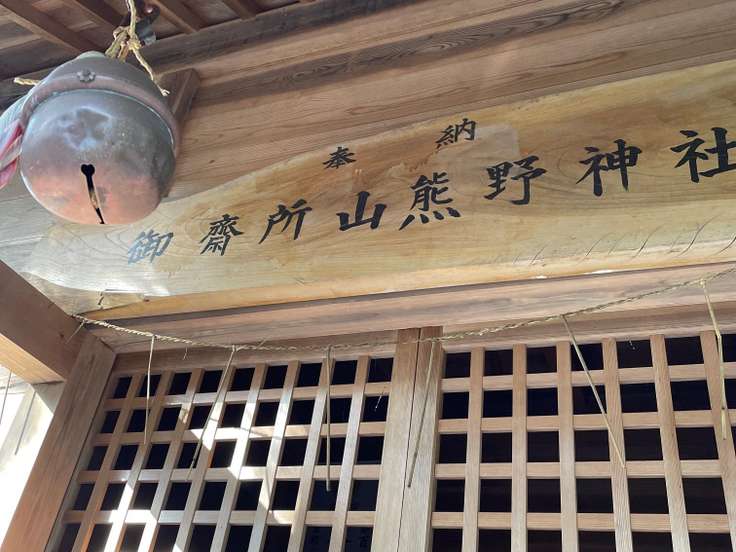 奉納
御齋所山熊野神社